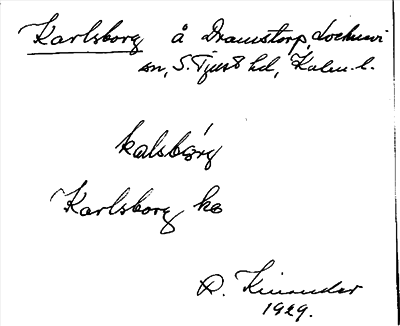 Karlsborg å Dramstorp, Locknevi
sn, S. Tjust hd, Kalm. l.
kalsbórg
Karlsborg ko
R. Kinander
1929.